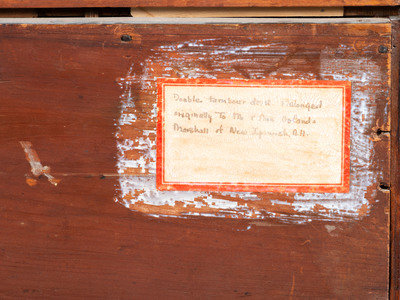 Double tambour desk Belonged
originally to Mr & Mrs Roland
Marshall of New Ipswich, N.H.